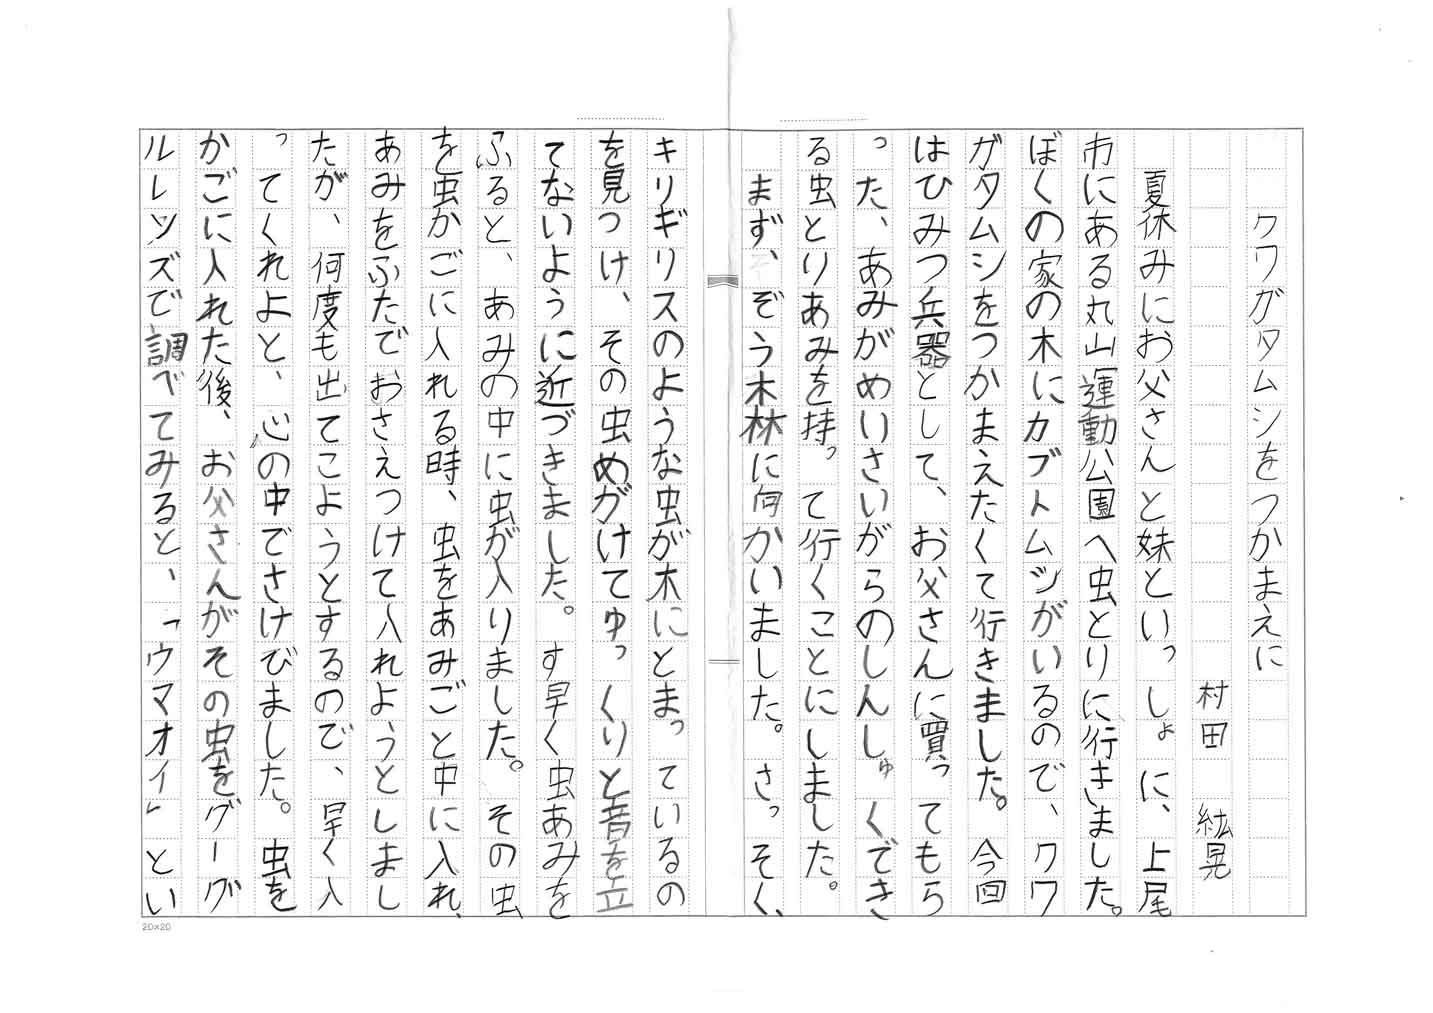 クワガタムシをつかまえに
村田　紘晃
夏休みにお父さんと妹といっしょに、上尾
市にある丸山運動公園へ虫とりに行きました。
ぼくの家の木にカブトムシがいるので、クワ
ガタムシをつかまえたくて行きました。今回
はひみつ兵器として、お父さんに買ってもら
った、あみがめいさいがらのしんしゅくでき
る虫とりあみを持って行くことにしました。
まず、ぞう木林に向かいました。さっそく、
キリギリスのような虫が木にとまっているの
を見つけ、その虫めがけてゅっくりと音を立
てないように近づきました。す早く虫あみを
ふると、あみの中に虫が入りました。その虫
を虫かごに入れる時、虫をあみごと中に入れ、
あみをふたでおさえつけて入れようとしまし
たが、何度も出てこようとするので、早く入
ってくれよと、心の中でさけびました。虫を
かごに入れた後、お父さんがその虫をグーグ
ルレッズで調べてみると、「ウマオイ」とい
20×20